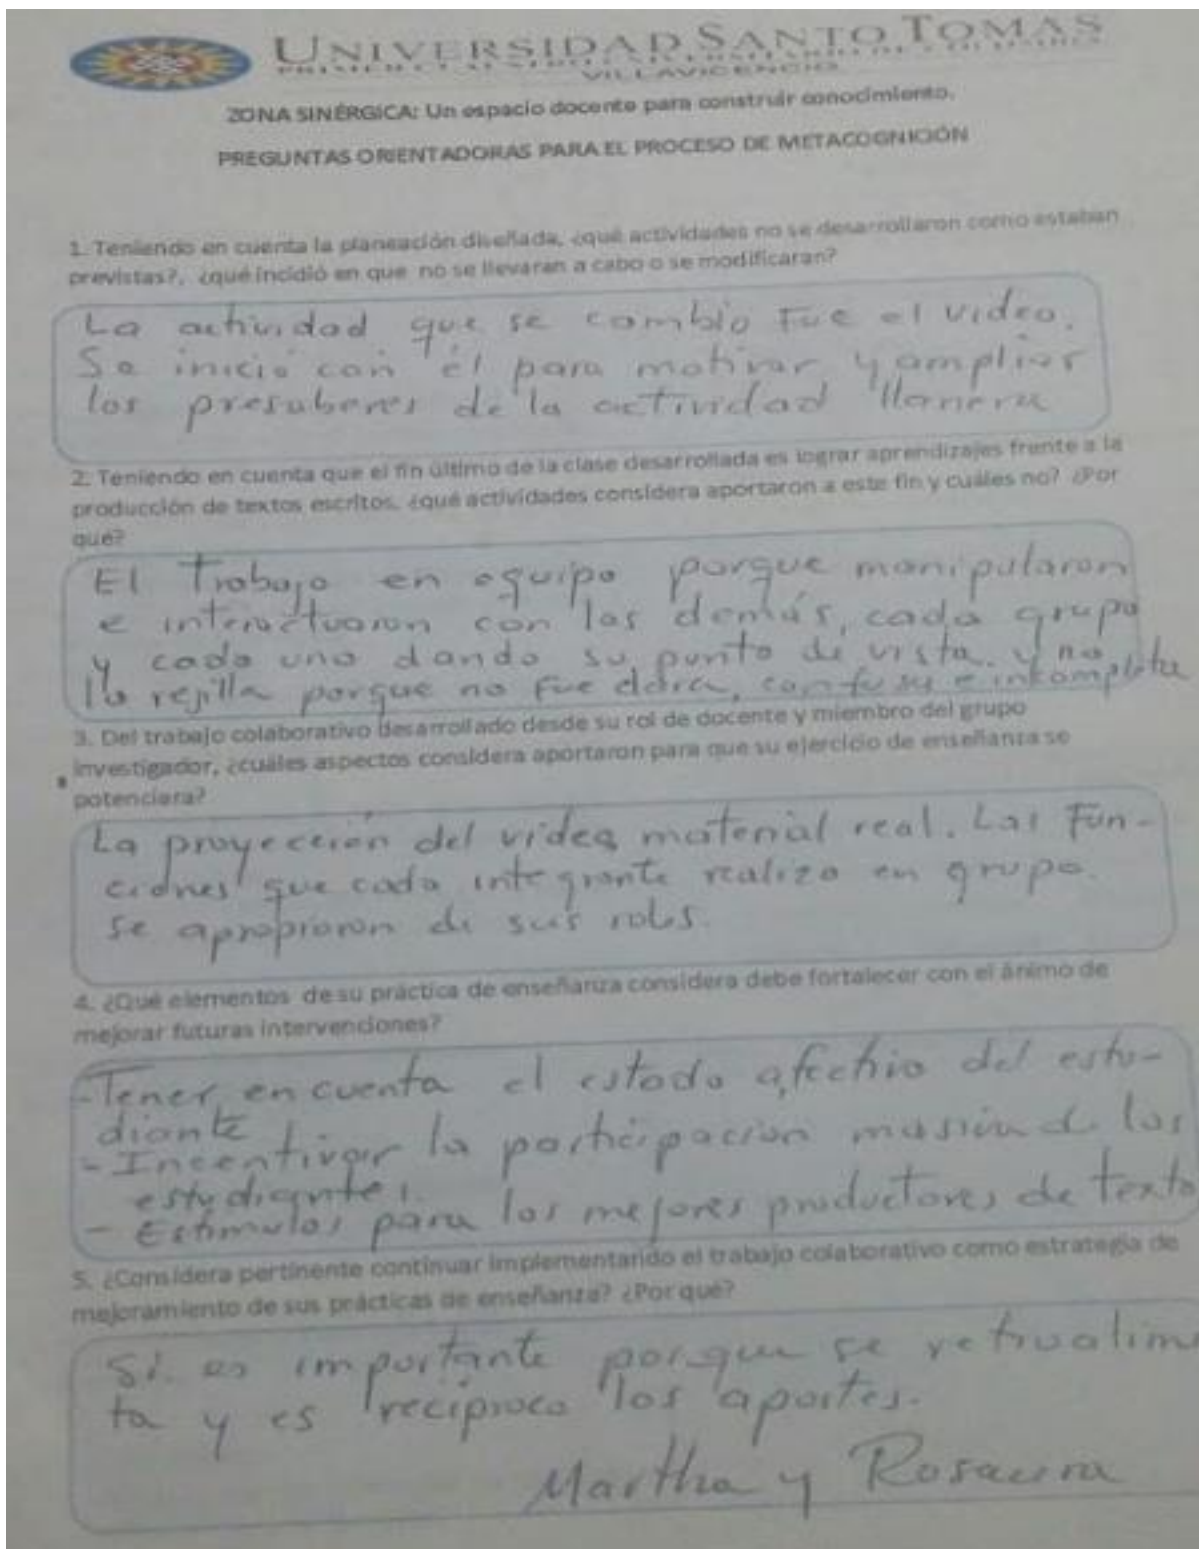 UNIVERSIDAD SANTO TOMAS
VILLAVICENCIO
ZONA SINÉRGICA: Un espacio docente para construir conocimiento.
PREGUNTAS ORIENTADORAS PARA EL PROCESO DE METACOGNICIÓN
1. Teniendo en cuenta la planeación diseñada, ¿qué actividades no se desarrollaron como estaban
previstas?, ¿qué incidió en que no se llevaran a cabo o se modificaran?
La actividad que se cambio Fue el video.
Se inició con él para motivar y ampliar
los presaberes de la actividad llanera
2. Teniendo en cuenta que el fin último de la clase desarrollada es lograr aprendizajes frente a la
producción de textos escritos, ¿qué actividades considera aportaron a este fin y cuáles no? ¿Por
qué?
El Trabajo en equipo porque manipularon
e interactuaron con los demás, cada grupo
y cada uno dando su punto de vista. y no
la rejilla porque no fue clara, confusa e incompleta
3. Del trabajo colaborativo desarrollado desde su rol de docente y miembro del grupo
investigador, ¿cuáles aspectos considera aportaron para que su ejercicio de enseñanza se
potenciara?
La proyección del video, material real. Las Fun-
ciones que cada integrante realizo en grupo.
se apropiaron de sus roles.
4. ¿Qué elementos de su práctica de enseñanza considera debe fortalecer con el ánimo de
mejorar futuras intervenciones?
-Tener en cuenta el estado afectivo del estu-
diante
- Incentivar la participación masiva de los
estudiantes.
- Estimulos para los mejores productores de texto
5. ¿Considera pertinente continuar implementando el trabajo colaborativo como estrategia de
mejoramiento de sus prácticas de enseñanza? ¿Por qué?
Si. es importante porque se retroalim
ta y es reciproco los aportes.
Martha y Rosaura